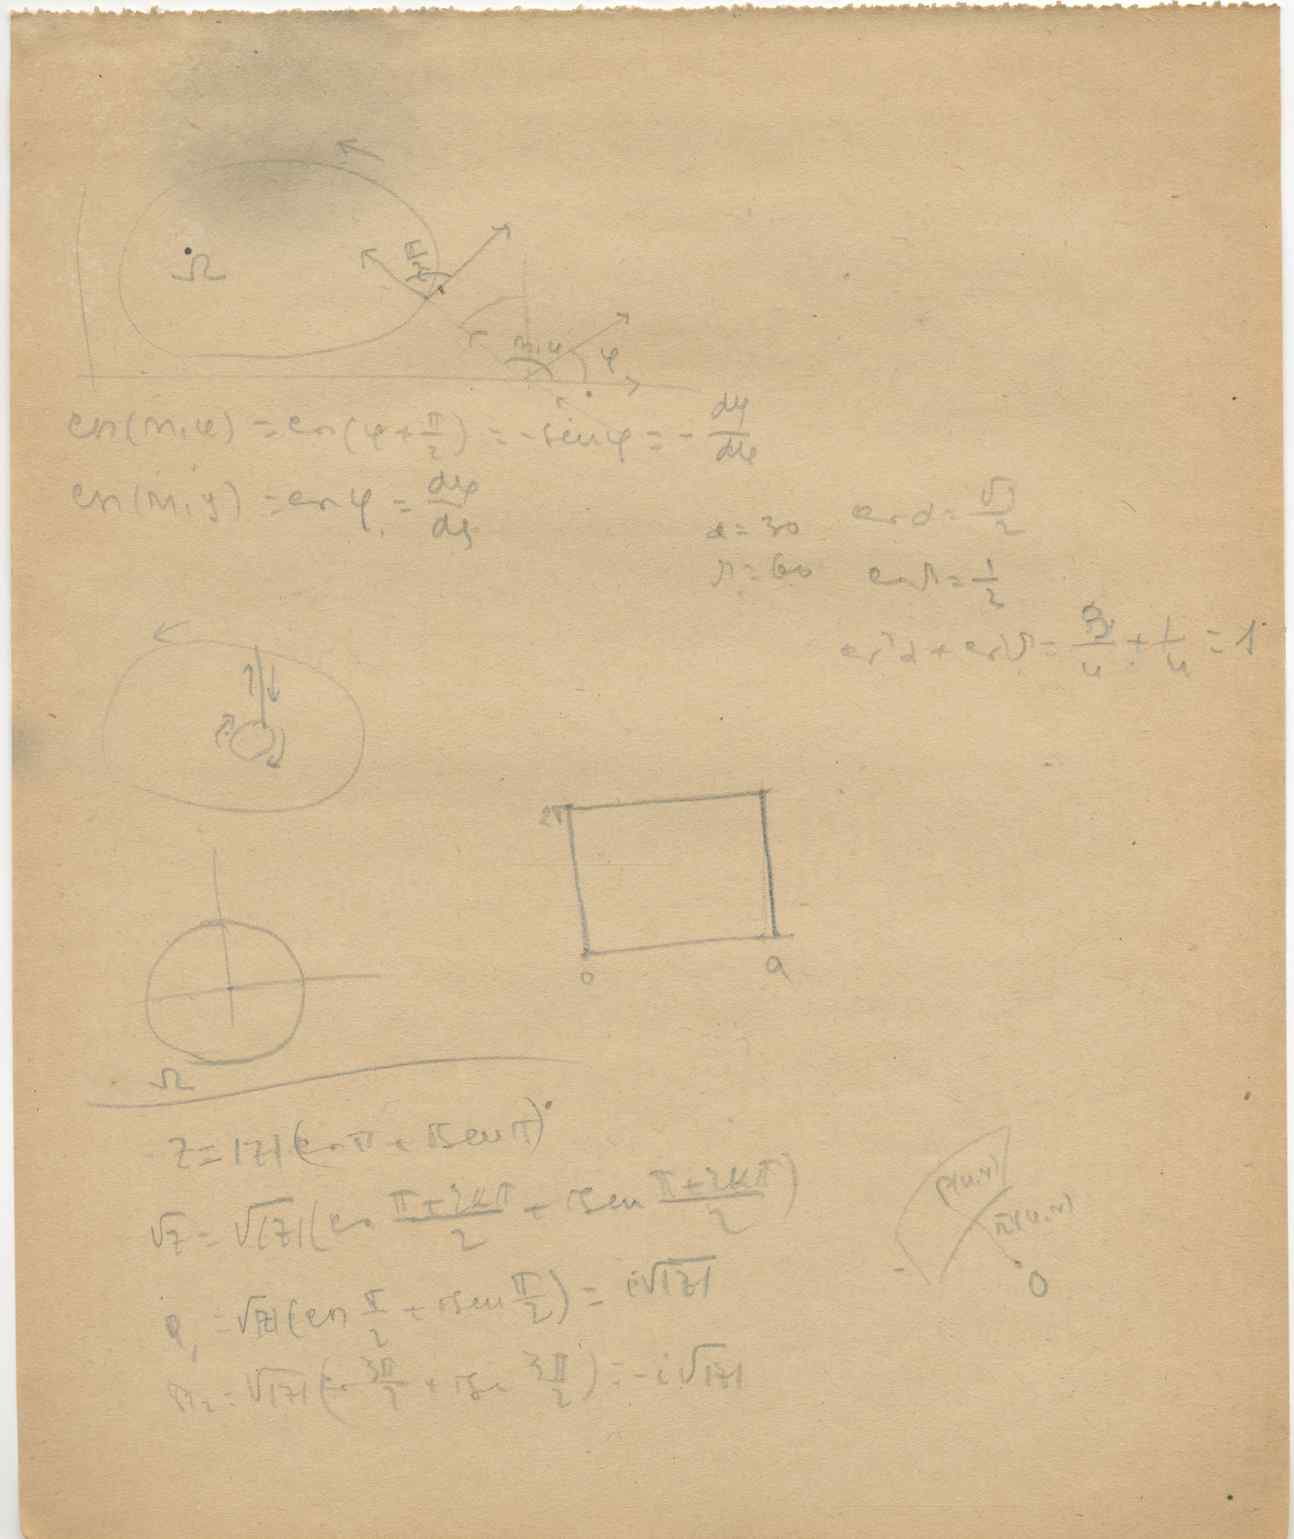 Ω
π/2
n,x
φ
cos(n,x) = cos(φ + π/2) = -senφ = - dy/ds
cos(n,y) = cosφ = dx/ds
α = 30 cos α = √3/2
β = 60 cos β = 1/2
cos²α + cos²β = 3/4 + 1/4 = 1
2π
0 a
Ω
z = |z|(cos π + i sen π)
√z = √|z| (cos (π+2kπ)/2 + i sen (π+2kπ)/2)
P(u,v)
π(u,v)
0
= √|z| (cos π/2 + i sen π/2) = i√|z|
= √|z| (cos 3π/2 + i sen 3π/2) = -i√|z|